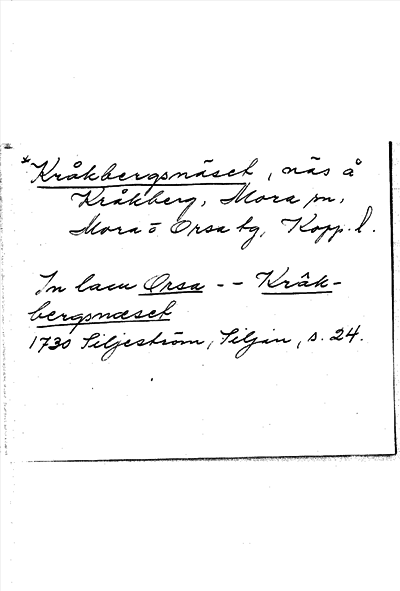 *Kråkbergsnäset, näs å
Kråkberg, Mora sn,
Mora o Orsa tg, Kopp. l.
In lacu Orsa -- Kråk-
bergsnæset
1730 Siljeström, Siljan, s. 24.